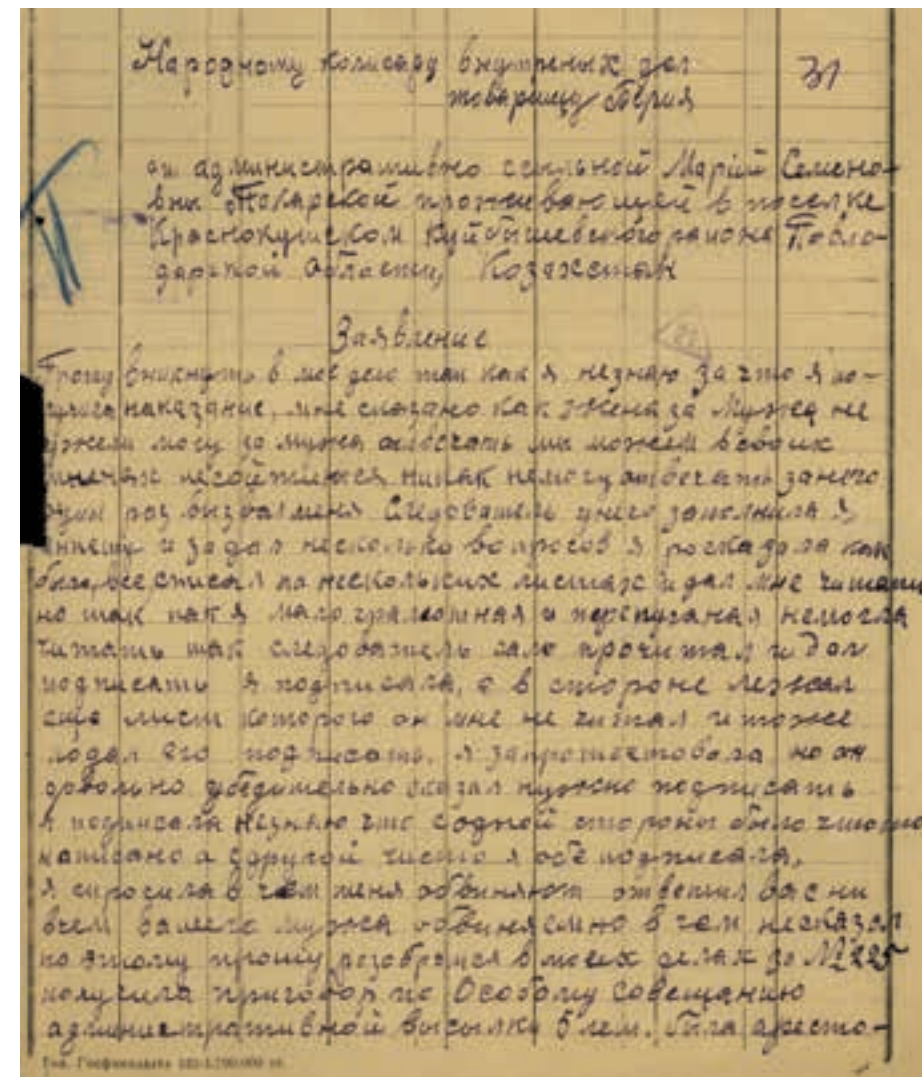 Народному комисару внутреных дел
31
товарищу Берия
от административно ссыльной Марiи Семено-
вны Токарской проживающей в поселке
Краснокутском Куйбышевского района Павло-
дарской области, Козахстан
Заявление
Прошу вникнуть в мое дело так как я незнаю за что я по-
лучила наказание, мне сказано как жена за мужа не
ужели могу за мужа отвечать мы можем в своих
мненях несойтися никак немогу отвечать занего
один раз вызвал меня следователь унего заполнила я
анкету и задал несколько вопросов я росказала как
было, все списал на нескольких листах и дал мне читать
но так как я малограмотная и перепуганая немогла
читать так следователь сам прочитал и дал
подписать я подписала, а в стороне лежал
еще лист которого он мне не читал и тоже
подал его подписать, я запротестовала но он
довольно убедительно сказал нужно подписать
я подписала незнаю что содной стороны было что то
написано а здругой чисто я обе подписала,
я спросила в чем меня обвиняют ответил вас ни
вчем вашего мужа обвиняем но в чем несказал
по этому прошу розобратся в моих делах за № 225
получила приговор по Особому Совещанию
административной высылки 5 лет. Была аресто-